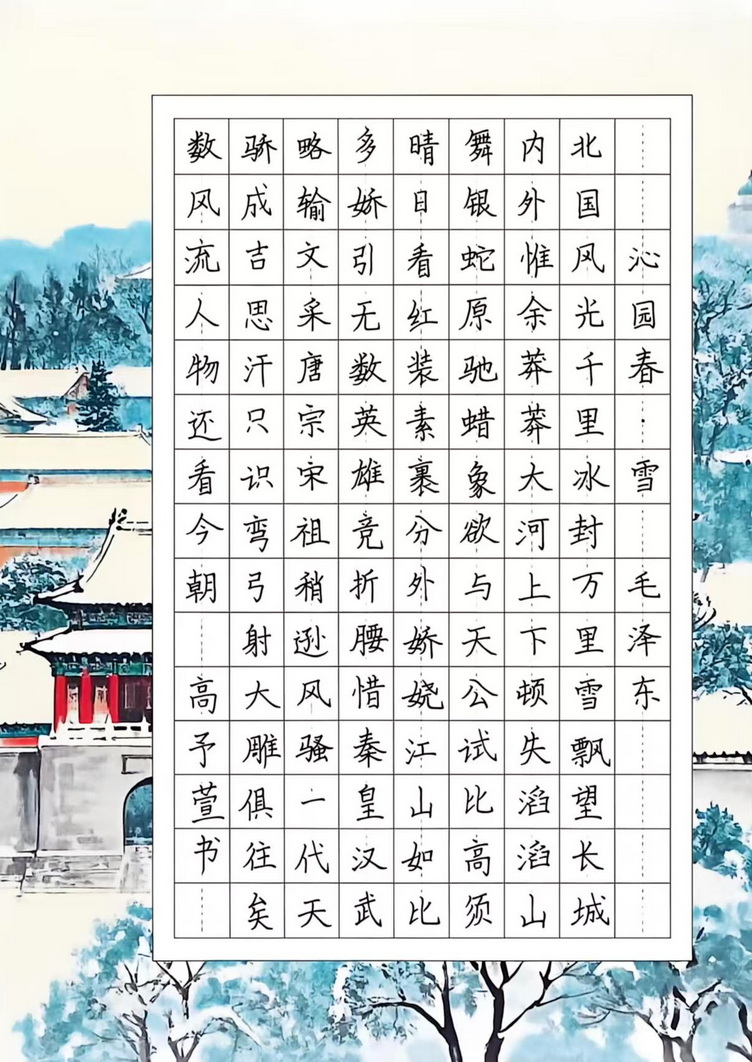 沁园春·雪 毛泽东
北国风光千里冰封万里雪飘望长城
内外惟余莽莽大河上下顿失滔滔山
舞银蛇原驰蜡象欲与天公试比高须
晴日看红装素裹分外娇娆江山如比
多娇引无数英雄竞折腰惜秦皇汉武
略输文采唐宗宋祖稍逊风骚一代天
骄成吉思汗只识弯弓射大雕俱往矣
数风流人物还看今朝 高予萱书